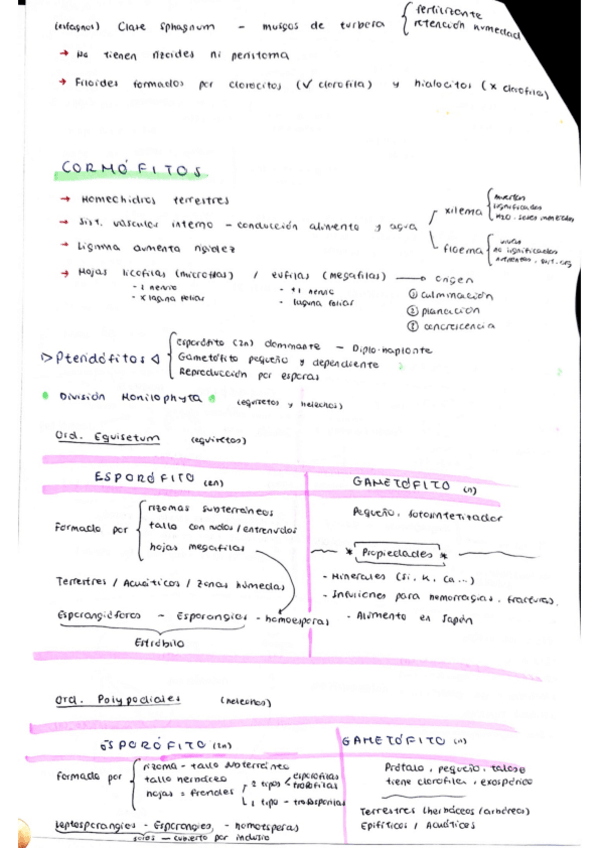 (esfagnos) Clase Sphagnum - musgos de turbera { fertilizante
retención humedad
→ No tienen rizoides ni peristoma
→ Filoides formados por clorocitos (✓ clorofila) y hialocitos (x clorofila)
CORMÓFITOS
→ Homeohidros terrestres
→ Sist. vascular interno - conducción alimento y agua
xilema { muertas
lignificadas
floema { vivas
no lignificadas
→ Lignina aumenta rigidez
→ Hojas licofilas (microfilas) / eufilas (megafilas) → origen
- 1 nervio
- x laguna foliar
- +1 nervio
- laguna foliar
① culminación
② planación
③ concrescencia
▷ Pteridófitos ◁ { esporófito (2n) dominante - Diplo-haplonte
Gametófito pequeño y dependiente
Reproducción por esporas
División Monilophyta (equisetos y helechos)
Ord. Equisetum (equisetos)
ESPORÓFITO (2n)
Formado por { rizomas subterraneos
tallo con nudos/entrenudos
hojas megafilas
Terrestres / Acuáticos / zonas húmedas
Esporangióforos - Esporangios - homoesporas
Estróbilo
GAMETÓFITO (n)
Pequeño, fotosintetizador
* Propiedades *
- Minerales (Si, K, Ca...)
- Infusiones para hemorragias, fracturas.
- Alimento en Japón
Ord. Polypodiales (helechos)
ESPORÓFITO (2n)
Formado por { rizoma - tallo subterráneo
tallo herbáceo
hojas = frondes
2 tipos < esporofilas
trofofilas
1 tipo -
Leptosporangios - Esporangios - homoesporas
soros - cubierto por indusio
GAMETÓFITO (n)
Prótalo, pequeño, taloso
tiene clorofila, exospórico
Terrestres (herbáceos/arbóreo)
Epifíticos / Acuáticos